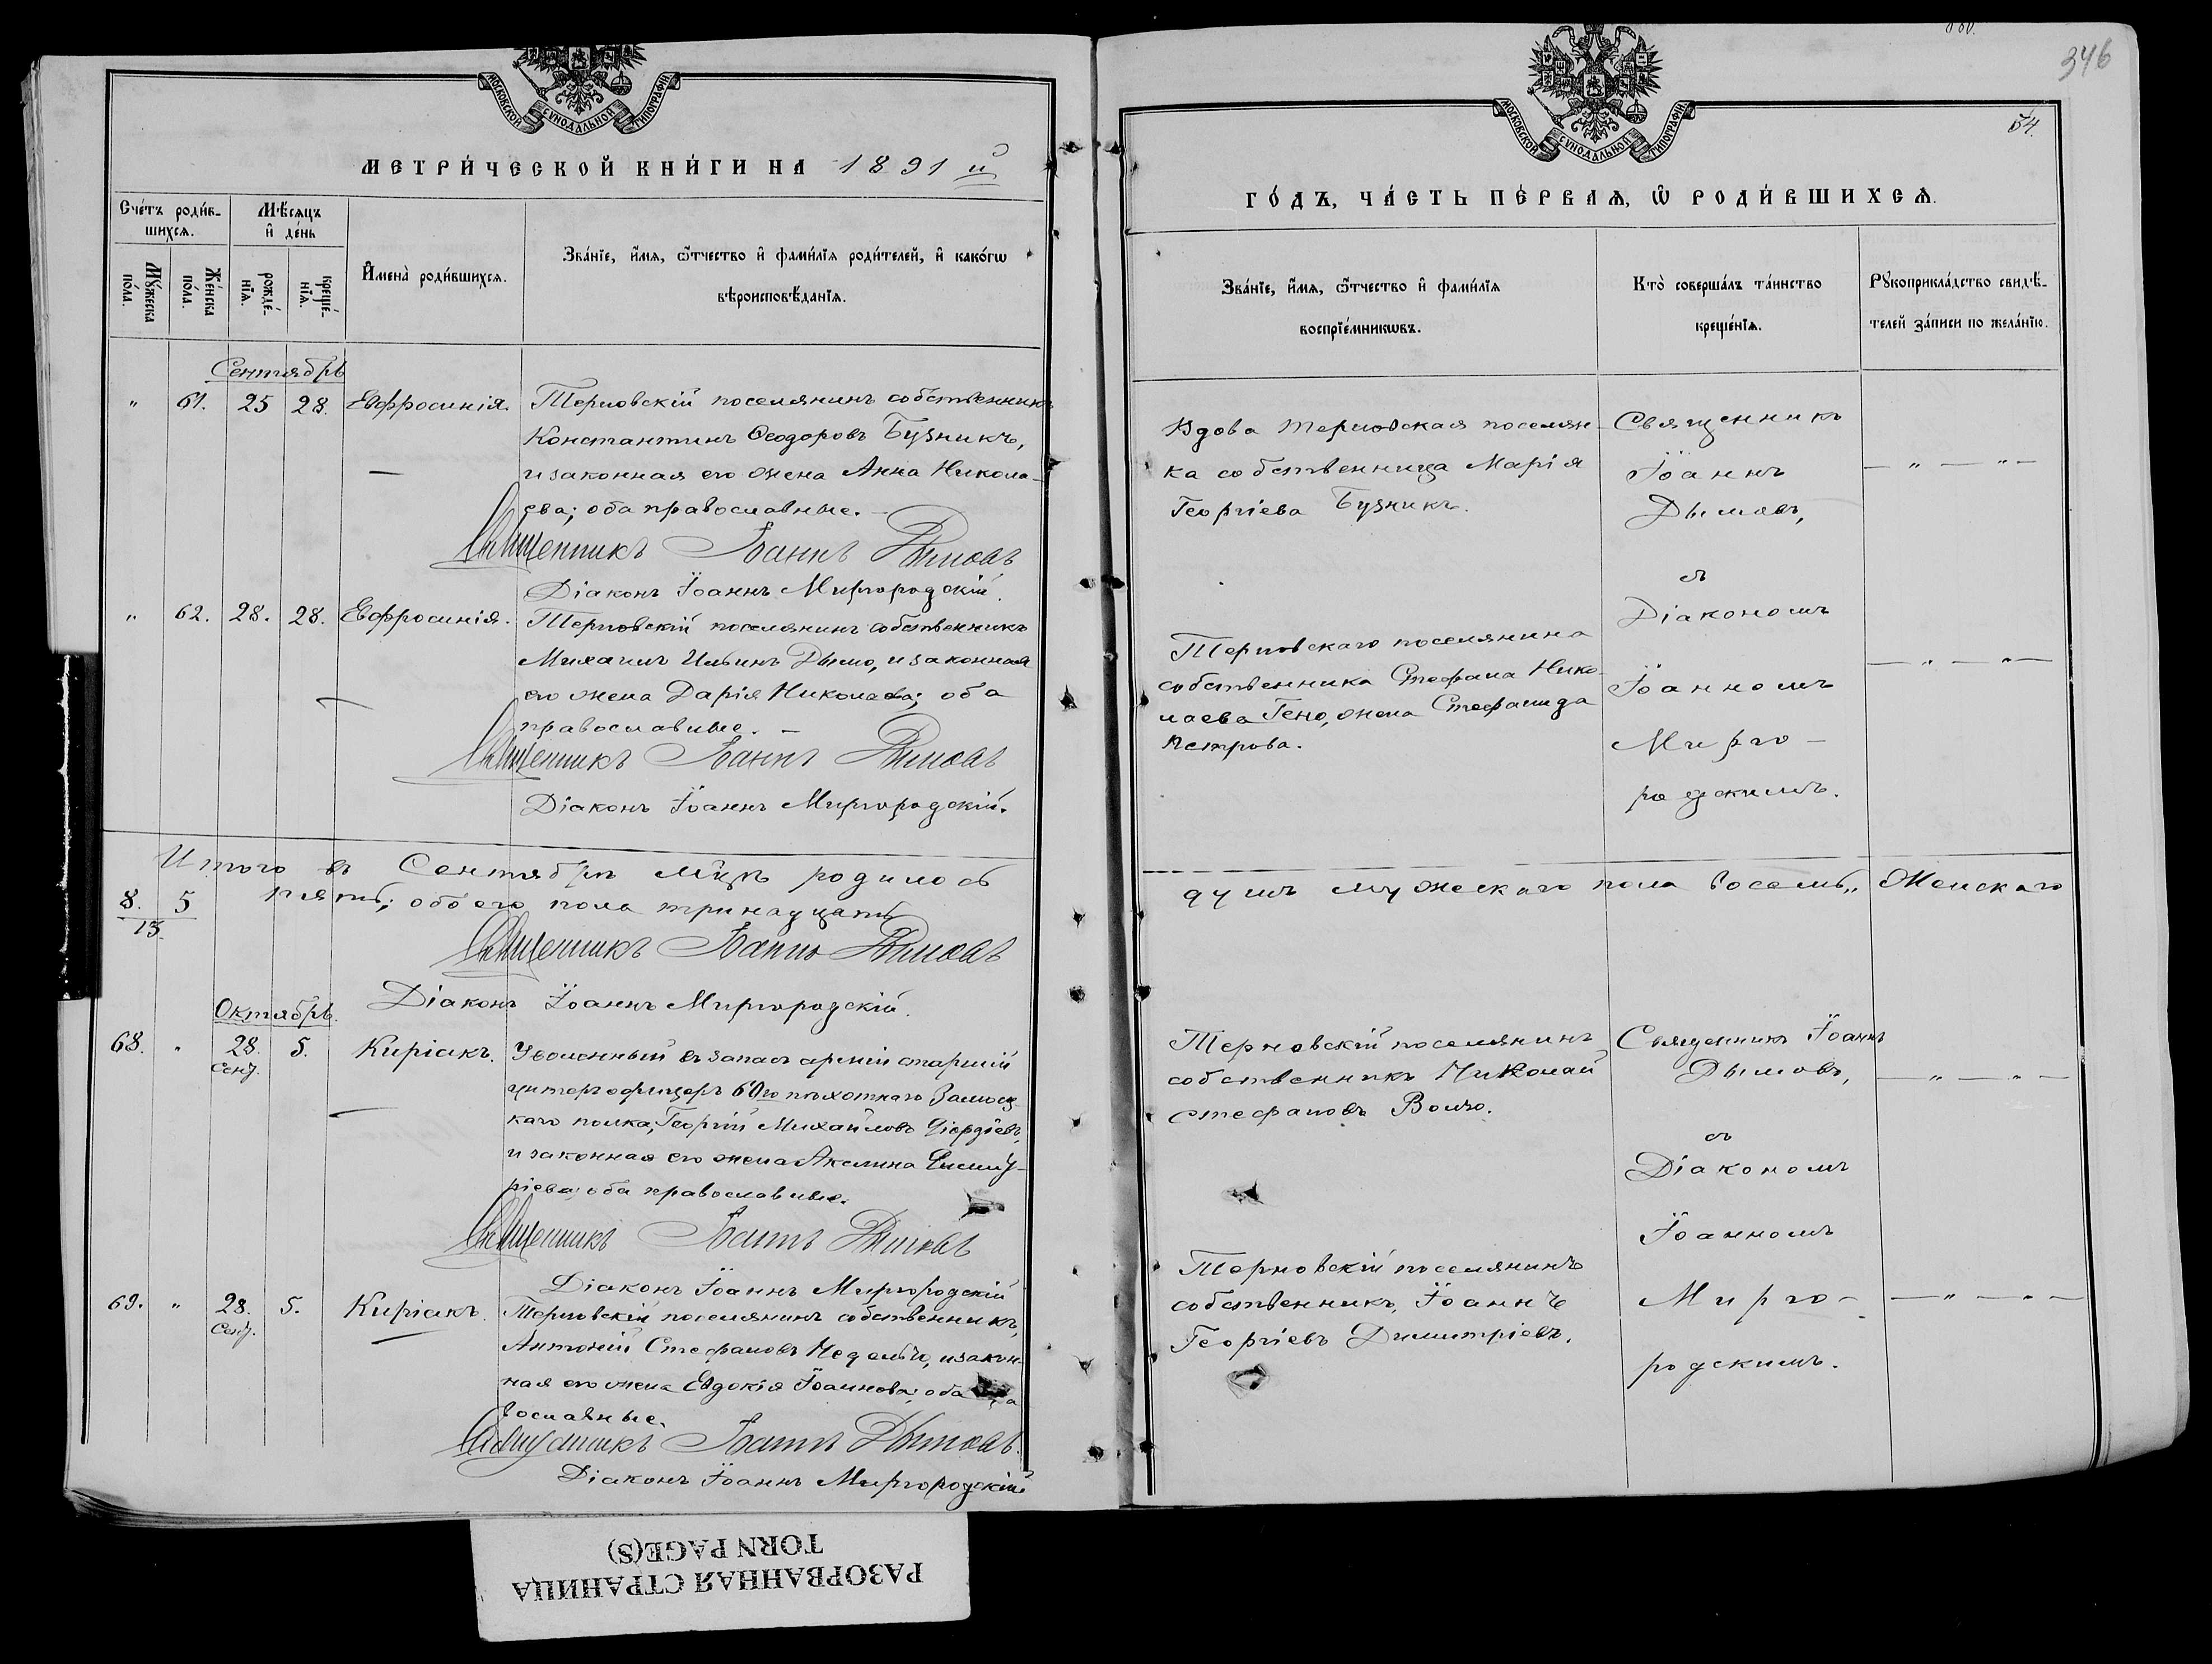 МОСКОВСКОЙ СѴНОДАЛЬНОЙ ТИПОГРАФІИ
МЕТРИ́ЧЕСКОЙ КНИ́ГИ НА 1891 й
Сче́тъ роди́в-
шихсѧ.
Мѣ́сѧцъ
и҆ де́нь
Мꙋ́жеска
по́ла.
Же́нска
по́ла.
рожде́-
нїѧ.
креще́-
нїѧ.
И҆мена̀ роди́вшихсѧ.
Зва́нїе, и҆́мѧ, ѻ҆́тчество и҆ фами́лїѧ роди́телей, и҆ како́гѡ
вѣроисповѣ́данїѧ.
Сентябрь
" 61. 25 28. Евфросинія.
Терновскій поселянинъ собственникъ
Константинъ Ѳеодоровъ Бузникъ,
и законная его жена Анна Никола-
ева; оба православные. –
Священникъ Іоаннъ Дымовъ
Діаконъ Іоаннъ Миргородскій.
" 62. 28. 28. Евфросинія.
Терновскій поселянинъ собственникъ
Михаилъ Ильинъ Дымо, и законная
его жена Дарія Николаева; оба
православные. –
Священникъ Іоаннъ Дымовъ
Діаконъ Іоаннъ Миргородскій.
Итого въ Сентябрѣ мцѣ родилось
8. 5 пять; обоего пола тринадцать
13.
Священникъ Іоаннъ Дымовъ
Діаконъ Іоаннъ Миргородскій.
Октябрь.
68. " 28. Сент. 5. Киріакъ.
Уволенный въ запасъ арміи старшій
унтеръ офицеръ 60го пѣхотнаго Замосц-
каго полка, Георгій Михайловъ
и законная его жена Акилина
ріева; оба православные.
Священникъ Іоаннъ Дымовъ
Діаконъ Іоаннъ Миргородскій
69. " 28. Сент. 5. Киріакъ.
Терновскій поселянинъ собственникъ,
Антоній Стефановъ и закон-
ная его жена Евдокія Іоаннова; оба
вославные.
Священникъ Іоаннъ Дымовъ.
Діаконъ Іоаннъ Миргородскій
346
54.
МОСКОВСКОЙ СѴНОДАЛЬНОЙ ТИПОГРАФІИ
ГО́ДЪ, ЧА́СТЬ ПЕ́РВАѦ, Ѡ҆ РОДИ́ВШИХСѦ.
Зва́нїе, и҆́мѧ, ѻ҆́тчество и҆ фами́лїѧ
воспрїе́мникѡвъ.
Кто̀ соверша́лъ та́инство
креще́нїѧ.
Рꙋкоприкла́дство свидѣ́-
телей за́писи по жела́нїю.
Вдова Терновская поселян-
ка собственница Марія
Георгіева Бузникъ.
Священникъ
Іоаннъ
Дымовъ,
съ
Діакономъ
Іоанномъ
Мирго-
родскимъ.
Терновскаго поселянина
собственника Стефана Нико-
лаева Гено, жена Стефанида
Петрова.
душъ мужескаго пола восемь,, Женскаго
Терновскій поселянинъ
собственникъ Николай
Стефановъ Волчо.
Священникъ Іоаннъ
Дымовъ,
съ
Діакономъ
Іоанномъ
Мирго-
родскимъ.
Терновскій поселянинъ
собственникъ, Іоаннъ
Георгіевъ Димитріевъ.
РАЗОРВАННАЯ СТРАНИЦА
TORN PAGE(S)